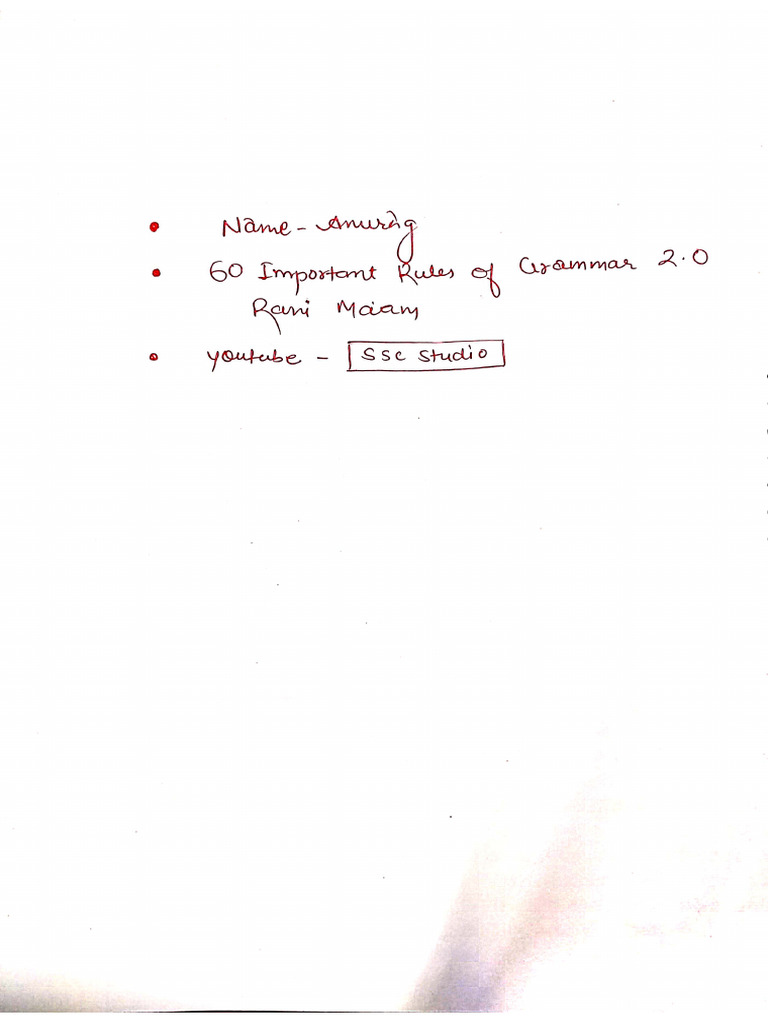 • Name - Anurag
• 60 Important Rules of Grammar 2.0
Rani Ma'am
• Youtube - SSC Studio